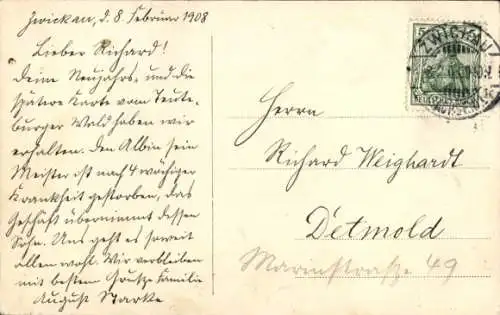 Zwickau, d. 8. Februar 1908
Lieber Richard!
Deine Neujahrs- und die
spätere Karte vom Teuto-
burger Wald haben wir
erhalten. Den Albin sein
Meister ist nach 4 wöchiger
Krankheit gestorben, das
Geschäft übernimmt dessen
Sohn. Uns geht es soweit
allen wohl. Wir verbleiben
mit bestem Gruße Familie
August Starke
ZWICKAU
Herrn
Richard Weighardt
Detmold
Marienstraße 49